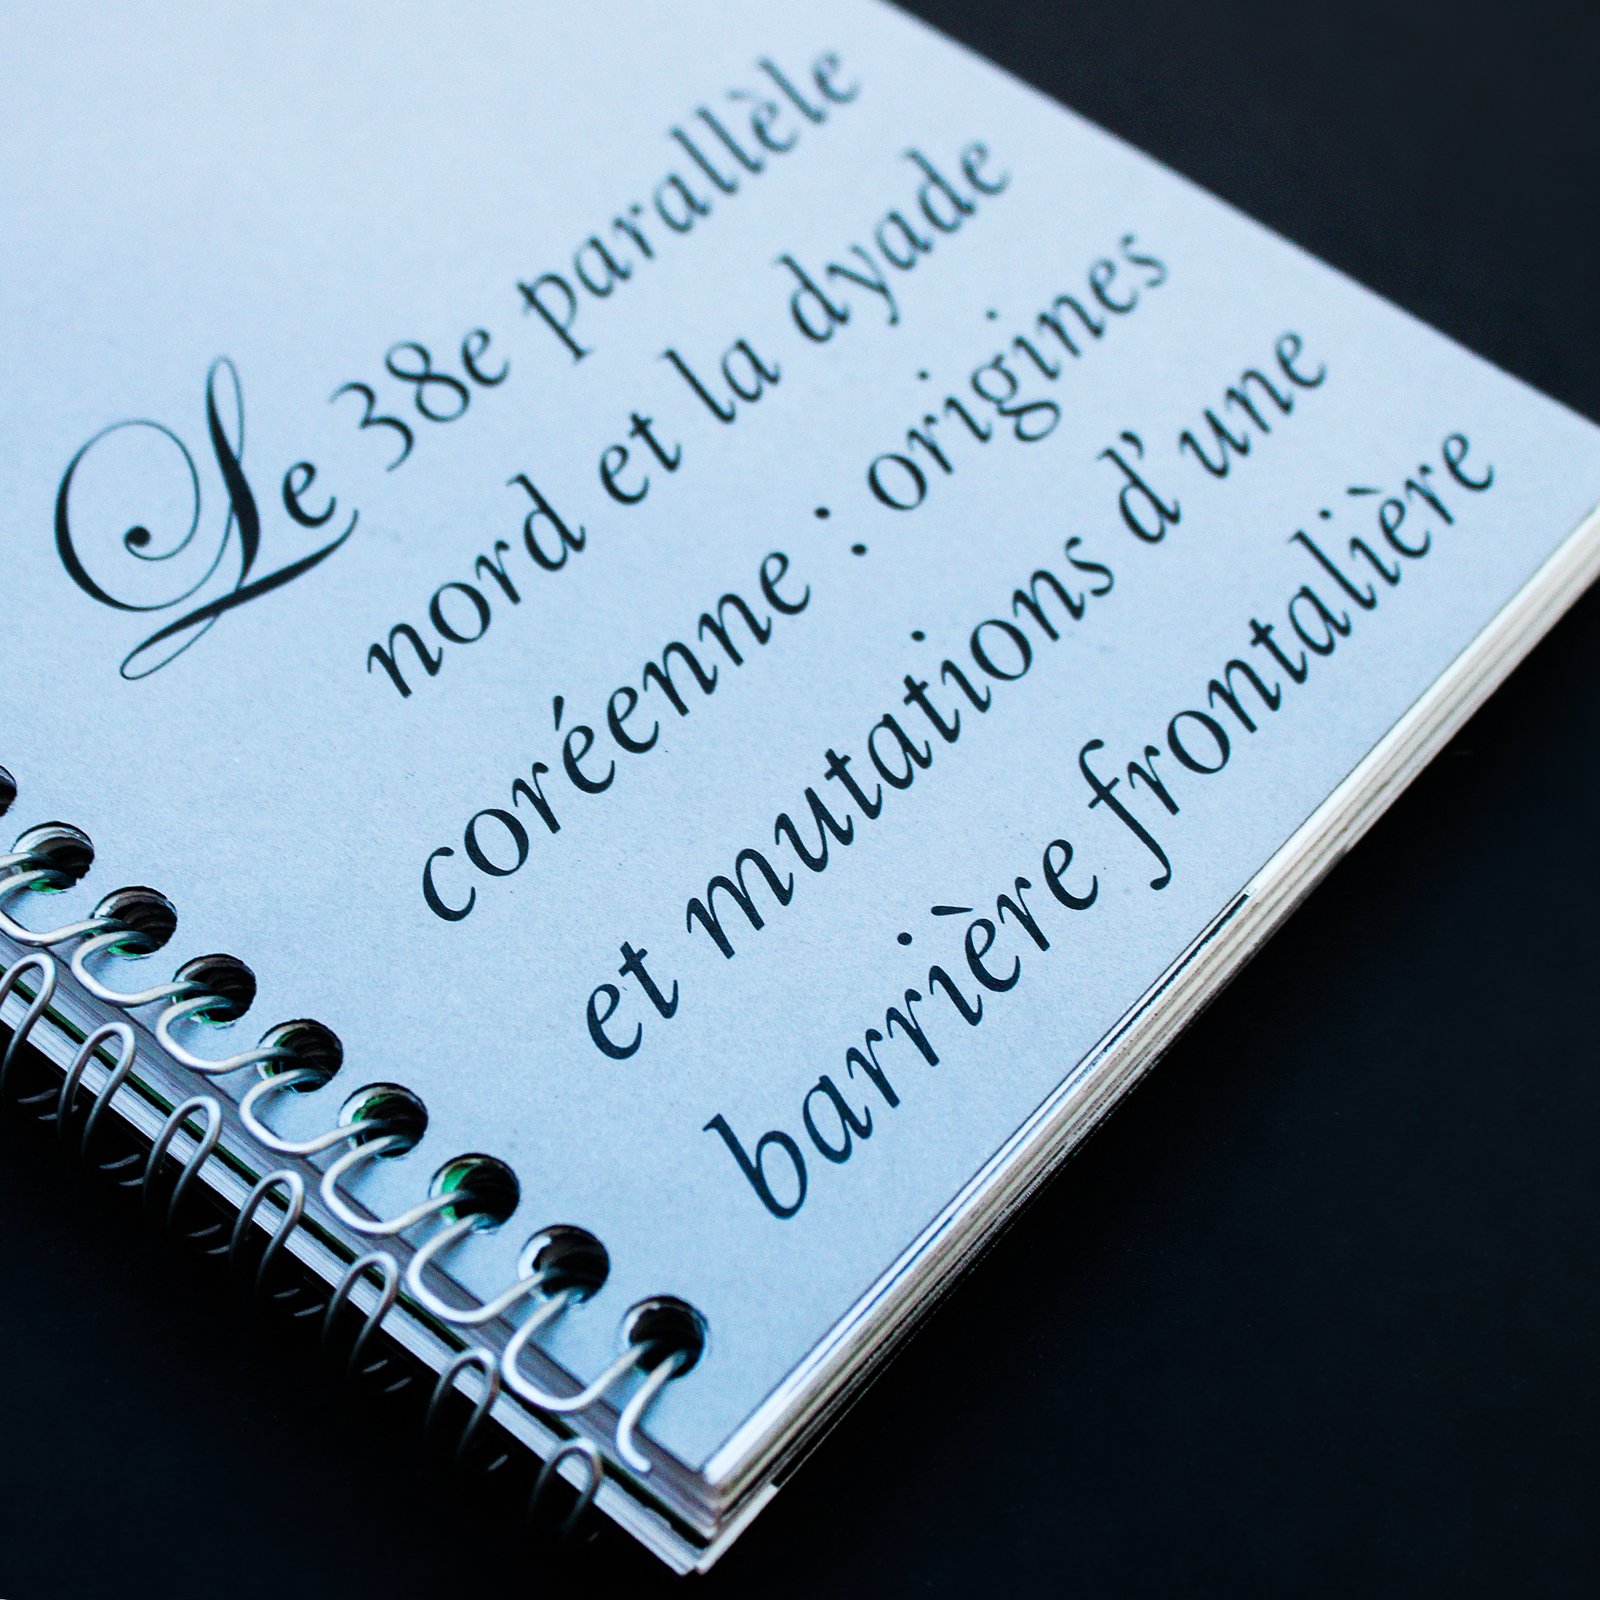 Le 38e parallèle
nord et la dyade
coréenne : origines
et mutations d'une
barrière frontalière